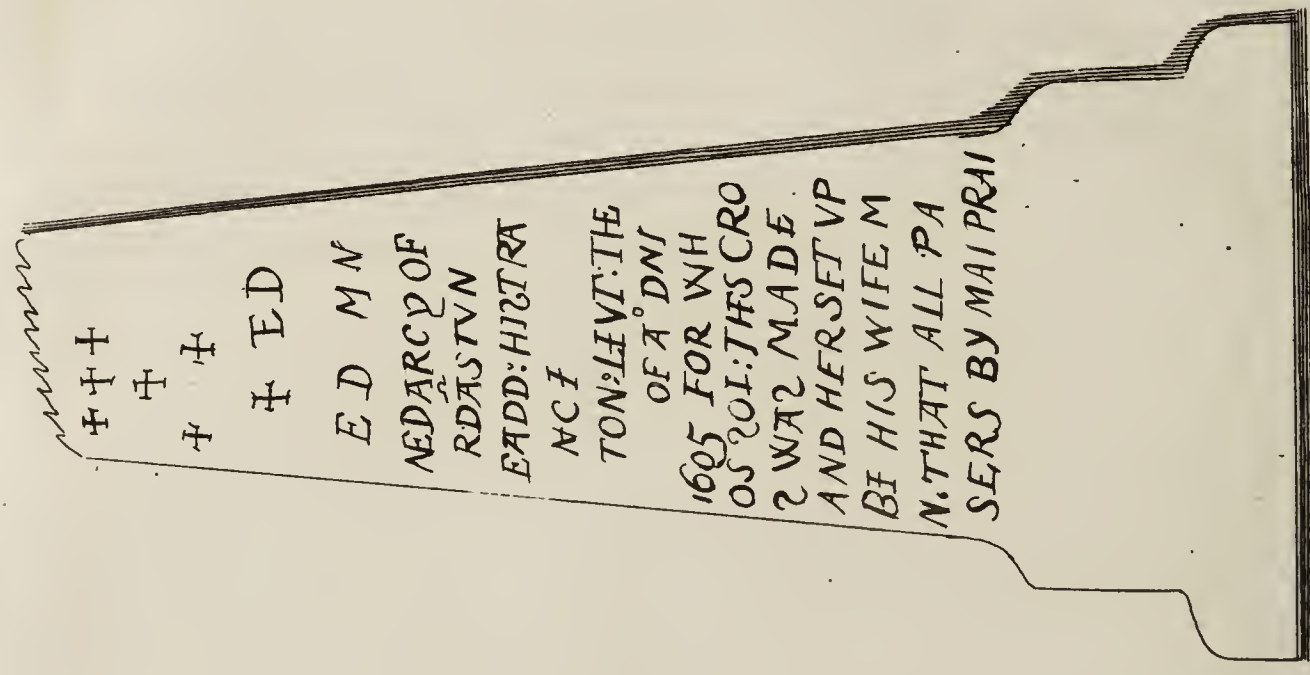 ED
ED MN
NEDARCY OF
RDASTVN
EADD:HISTRA
NCE
TON:LIVT:THE
OF A° DNI
1605 FOR WH
OS SOL:THS CRO
S WAS MADE
AND HERSET VP
BE HIS WIFE M
N.THAT ALL PA
SERS BY MAI PRAI